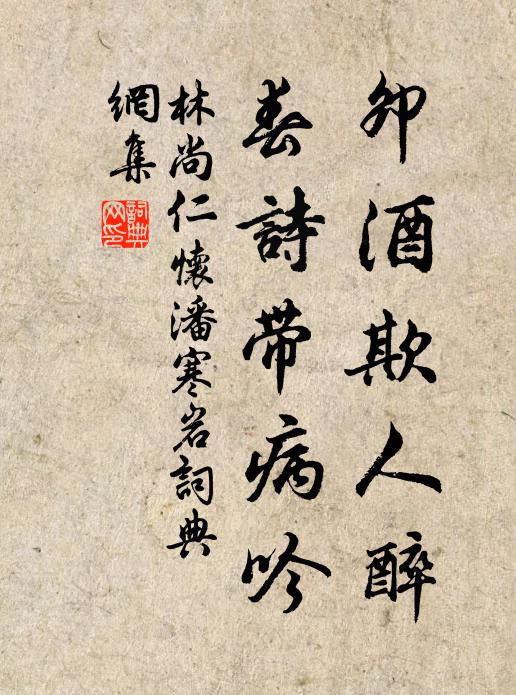 卯酒欺人醉
春詩帶病吟
林尚仁懷潘寒岩詞典
網集
詞典網印